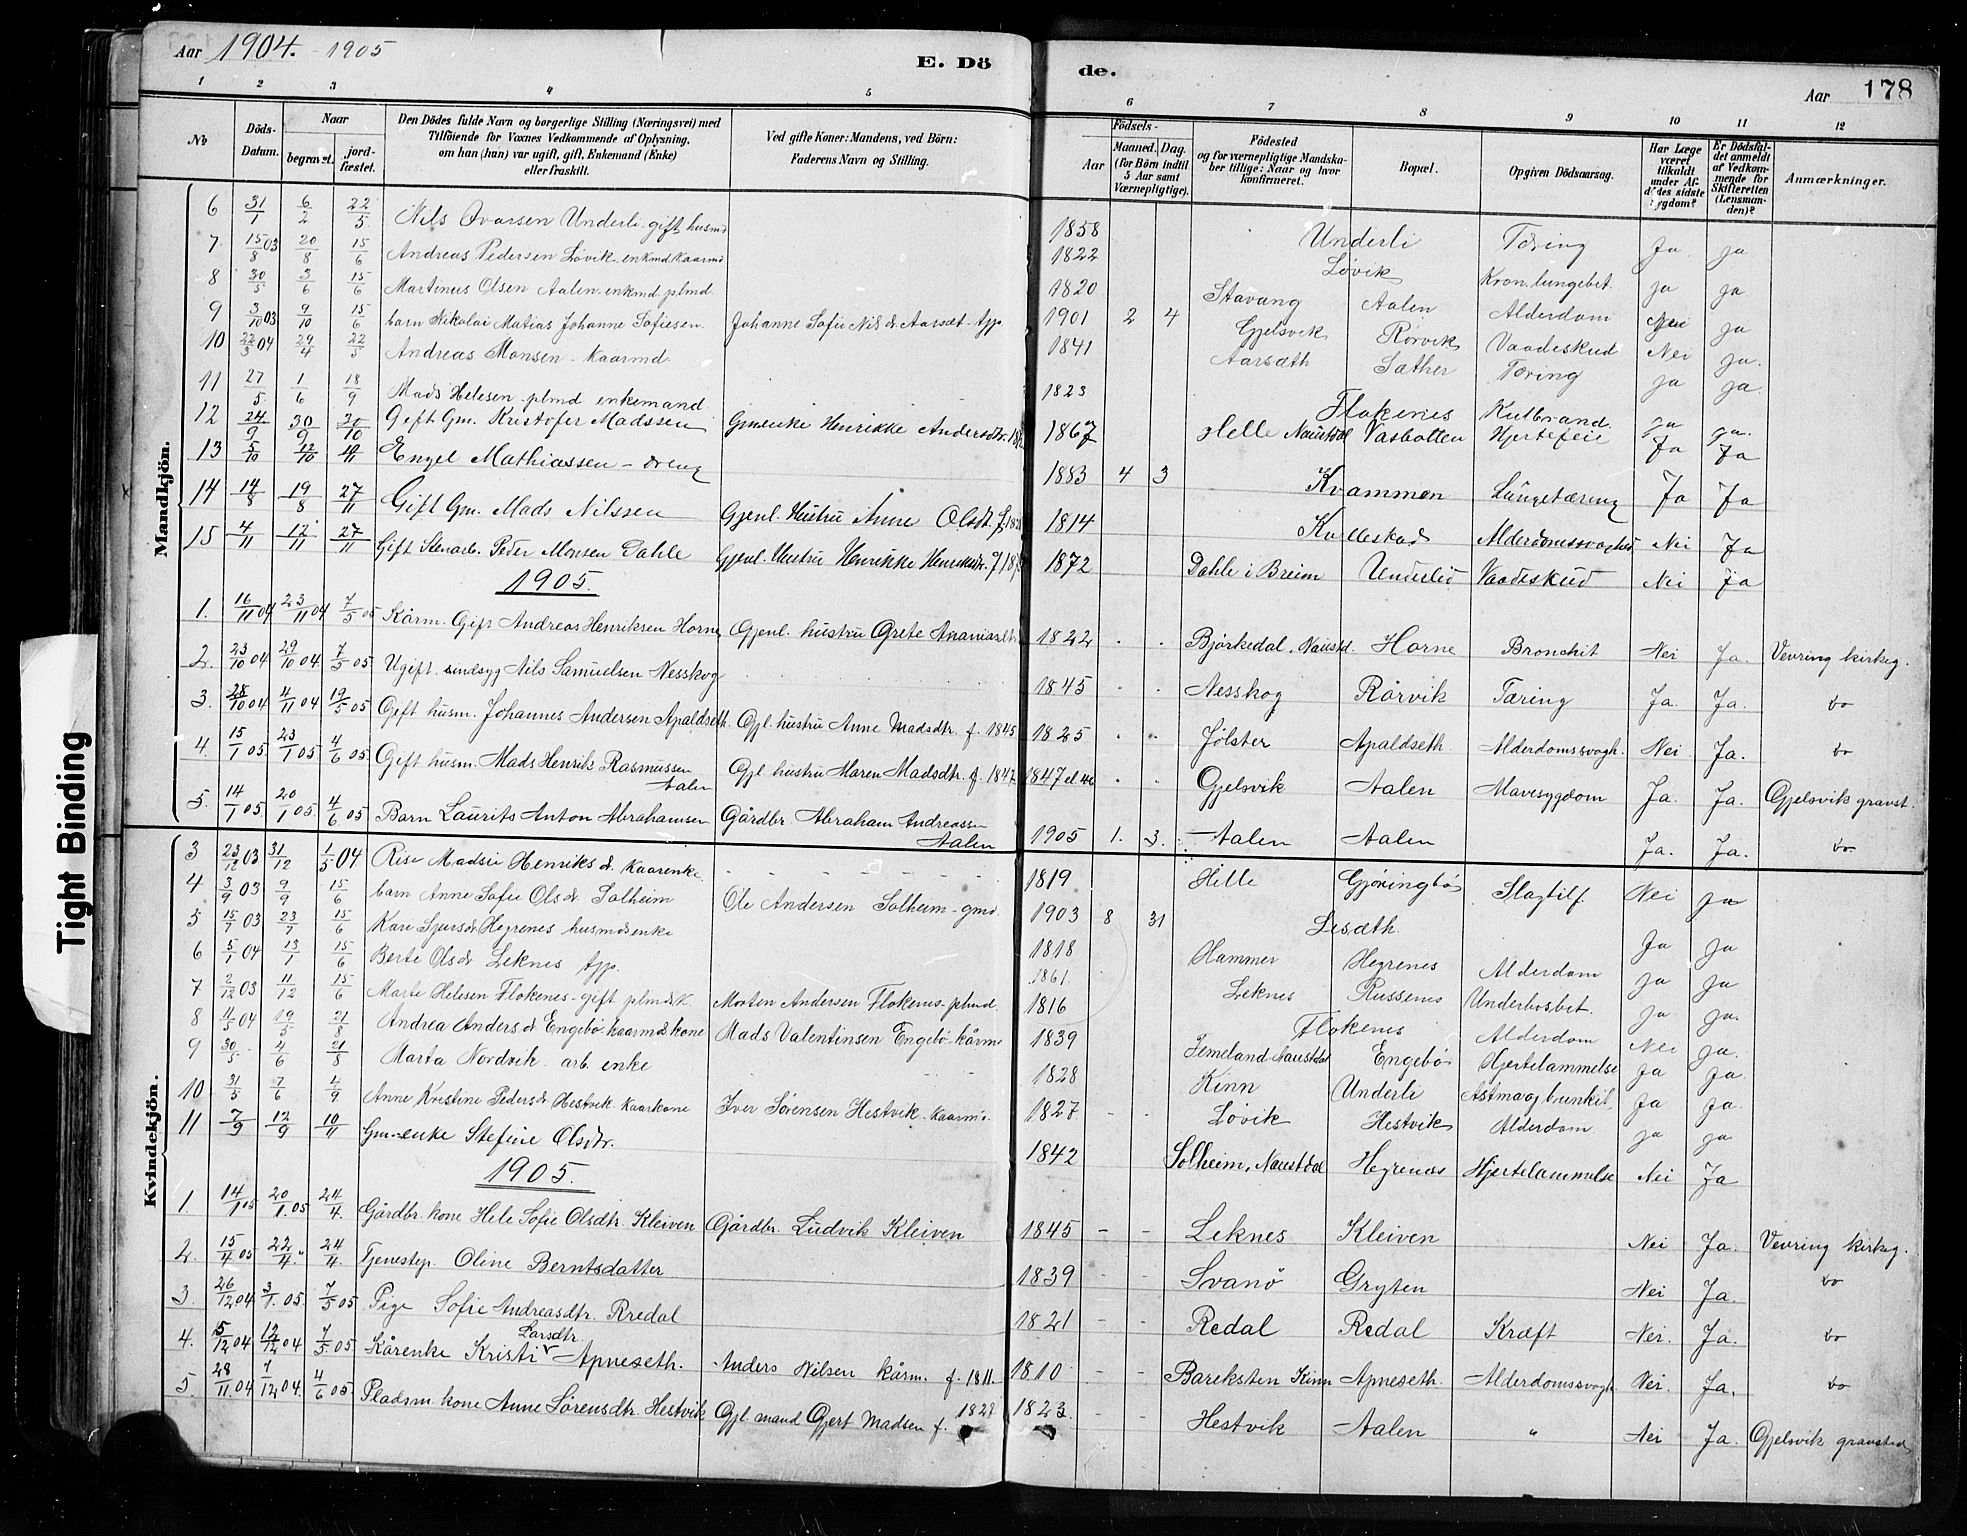 Aar 1904. - 1905
E. Dö de.
Aar 178
1 2 3 4 5 6 7 8 9 10 11 12
No Döds-Datum. Naar begravet. jordfæstet. Den Dödes fulde Navn og borgerlige Stilling (Næringsvei) med Tilföiende for Voxnes Vedkommende af Oplysning, om han (hun) var ugift, gift, Enkemand (Enke) eller fraskilt. Ved gifte Koner: Mandens, ved Börn: Faderens Navn og Stilling. Födsels- Aar Maaned. Dag. (for Börn indtil 5 Aar samt Værnepligtige). Födested og for værnepligtige Mandskaber tillige: Naar og hvor konfirmeret. Bopæl. Opgiven Dödsaarsag. Har Læge været tilkaldt under Afdödes sidste Sygdom? Er Dödsfaldet anmeldt af Vedkommende for Skifteretten (Lensmanden)? Anmærkninger.
Mandkjön.
6 31/1 6/2 22/5 Nils Ovarsen Underli gift husmd 1858 Underli Tæring Ja ja
7 15/8 03 20/8 15/6 Andreas Pedersen Løvik enkmd kaarmd 1822 Løvik Kron. lungebet. ja ja
8 30/5 3/6 15/6 Martinus Olsen Aalen enkmd. plmd. 1820 Stavang Aalen Alderdom ja
9 3/10 03 9/10 15/6 barn Nikolai Matias Johanne Sofiesen. Johanne Sofie Nilsd. Aarsæt - tjp 1901 2 4 Gjelsvik Rørvik Vaadeskud Nei ja.
10 22/3 04 29/4 22/5 Andreas Monsen - kaarmd. 1841 Aarsæth Sæther Tæring ja ja.
11 27/5 1/6 18/9 Mads Helesen plmd enkemand 1823 Flokenes Kulbrand. ja ja.
12 24/9 30/9 30/10 Gift Gm. Kristofer Madssen Gmsenke Henrikke Andersdtr. 1867 Helle Naustdal Vasbotten Hjertefeil Ja Ja
13 5/10 12/10 Engel Mathiassen - dreng 1883 4 3 Kvammen Lungetæring Ja Ja
14 14/8 19/8 27/11 Gift Gm. Mads Nilssen Gjenl. Hustru Anne Olsdt. 1814 Kalleskad Alderdomssvaghed Nei Ja
15 4/11 12/11 27/11 Gift Stenarb. Peder Monsen Dahle Gjenl. Hustru Henrikke Henriksdtr. 1872 Dahle i Breim Underlid Vaadeskud Nei Ja
1905.
1. 16/11 04 23/11 04 7/5 05 Kårm. Gift Andreas Henriksen Horne Gjenl. hustru Grete Ananiasdtr. 1822 Bjørkedal, Naustd. Horne Bronchit Nei Ja. Vevring kirkeg.
2. 23/10 04 29/10 04. 7/5 05 Ugift sindsyg Nils Samuelsen Nesskog 1845 Nesskog Rørvik Tæring Ja. Ja. do
3. 28/10 04 4/11 04 19/5 05 Gift husm. Johannes Andersen Apaldseth. Gjl. hustru Anne Madsdtr. f. 1845 1825 Jølster Apaldseth. Alderdomssvagh. Nei Ja. do
4. 15/1 05 23/1 05 4/6 05. Gift husm. Mads Henrik Rasmussen Aalen Gjl. hustru Maren Madsdtr. f. 1847. 1847 el 46 Gjelsvik Aalen Mavesygdom Ja. Ja. Gjelsvik gravst.
5. 14/1 05 20/1 05. 4/6 05 Barn Laurits Anton Abrahamsen Gårdbr. Abraham Andreassen Aalen 1905 1. 3. Aalen Aalen Ja. Ja. do
Kvindekjön.
3 23/12 03 31/12 1/5 04 Rise Madsie Henriksd. Kaarenke. 1819 Helle Gjøringbø Slagtilf. Nei ja
4 3/9 03 9/9 15/6 barn Anne Sofie Olsd. Solheim Ole Andersen Solheim - gmd. 1903 8 31 Lisæth. Ja ja
5 15/7 03 23/7 15/6 Kari Sjursd. Hegrenes husmdsenke 1818 Hammer Hegrenes Alderdom ja ja
6 5/1 04 13/1 15/6 Berte Olsd. Leknes tjp. 1861. Leknes Russenes Underlivsbet. ja ja
7 2/12 03 11/12 15/6 Marte Helesen Flokenes - gift plmdsk. Morten Andersen Flokenes - plmd. 1816 Flokenes Alderdom ja.
8 11/5 04 19/5 21/8 Andrea Andersd. Engebø kaarmdskone Mads Valentinsen Engebø - kårmd 1839 Femeland Naustdal Engebø Hjertelammelse Nei ja.
9 30/5 4/6 21/8 Marta Nordvik arb. enke 1828 Kinn Underli Astma og brunkit. ja ja.
10 31/5 7/6 4/9 Anne Kristine Pedersd. Hestvik - kaarkone Iver Sørensen Hestvik - kaarmd. 1827 Løvik Hestvik Alderdom. ja ja.
11 7/9 12/9 10/11 Gm.-enke Stefine Olsdtr. 1842 Solheim, Naustdal Hegrenæs Hjertelammelse Nei Ja
1905.
1. 14/1 05 20/1. 05 24/4. Gårdbr. kone Hele Sofie Olsdtr. Kleiven Gårdbr. Ludvik Kleiven 1845 Leknes Kleiven Nei Ja. Vevring kirkeg.
2. 15/4 05 22/4. 24/4. Tjenestep. Oline Berntsdatter 1839 Svanø Gryten Nei Ja. do
3. 26/12 04 3/1. 05. 7/5 05 Pige Sofie Andreasdtr. Rredal 1821 Redal Redal Kræft Nei. Ja. do
4. 5/12 04 12/12 04 7/5 05 Kårenke Kristi Larsdtr. Apneseth. Anders Nilsen kårm. f. 1811. 1810 Bareksten Kinn Apneseth. Alderdomssvagh. Nei. Ja. do
5. 28/11 04 7/12 04. 4/6 05. Pladsm. kone Anne Sørensdtr. Hestvik Gjl. mand Gjert Madsen f. 1827 1823. Hestvik Aalen " Nei Ja. Gjelsvik gravsted
Tight Binding